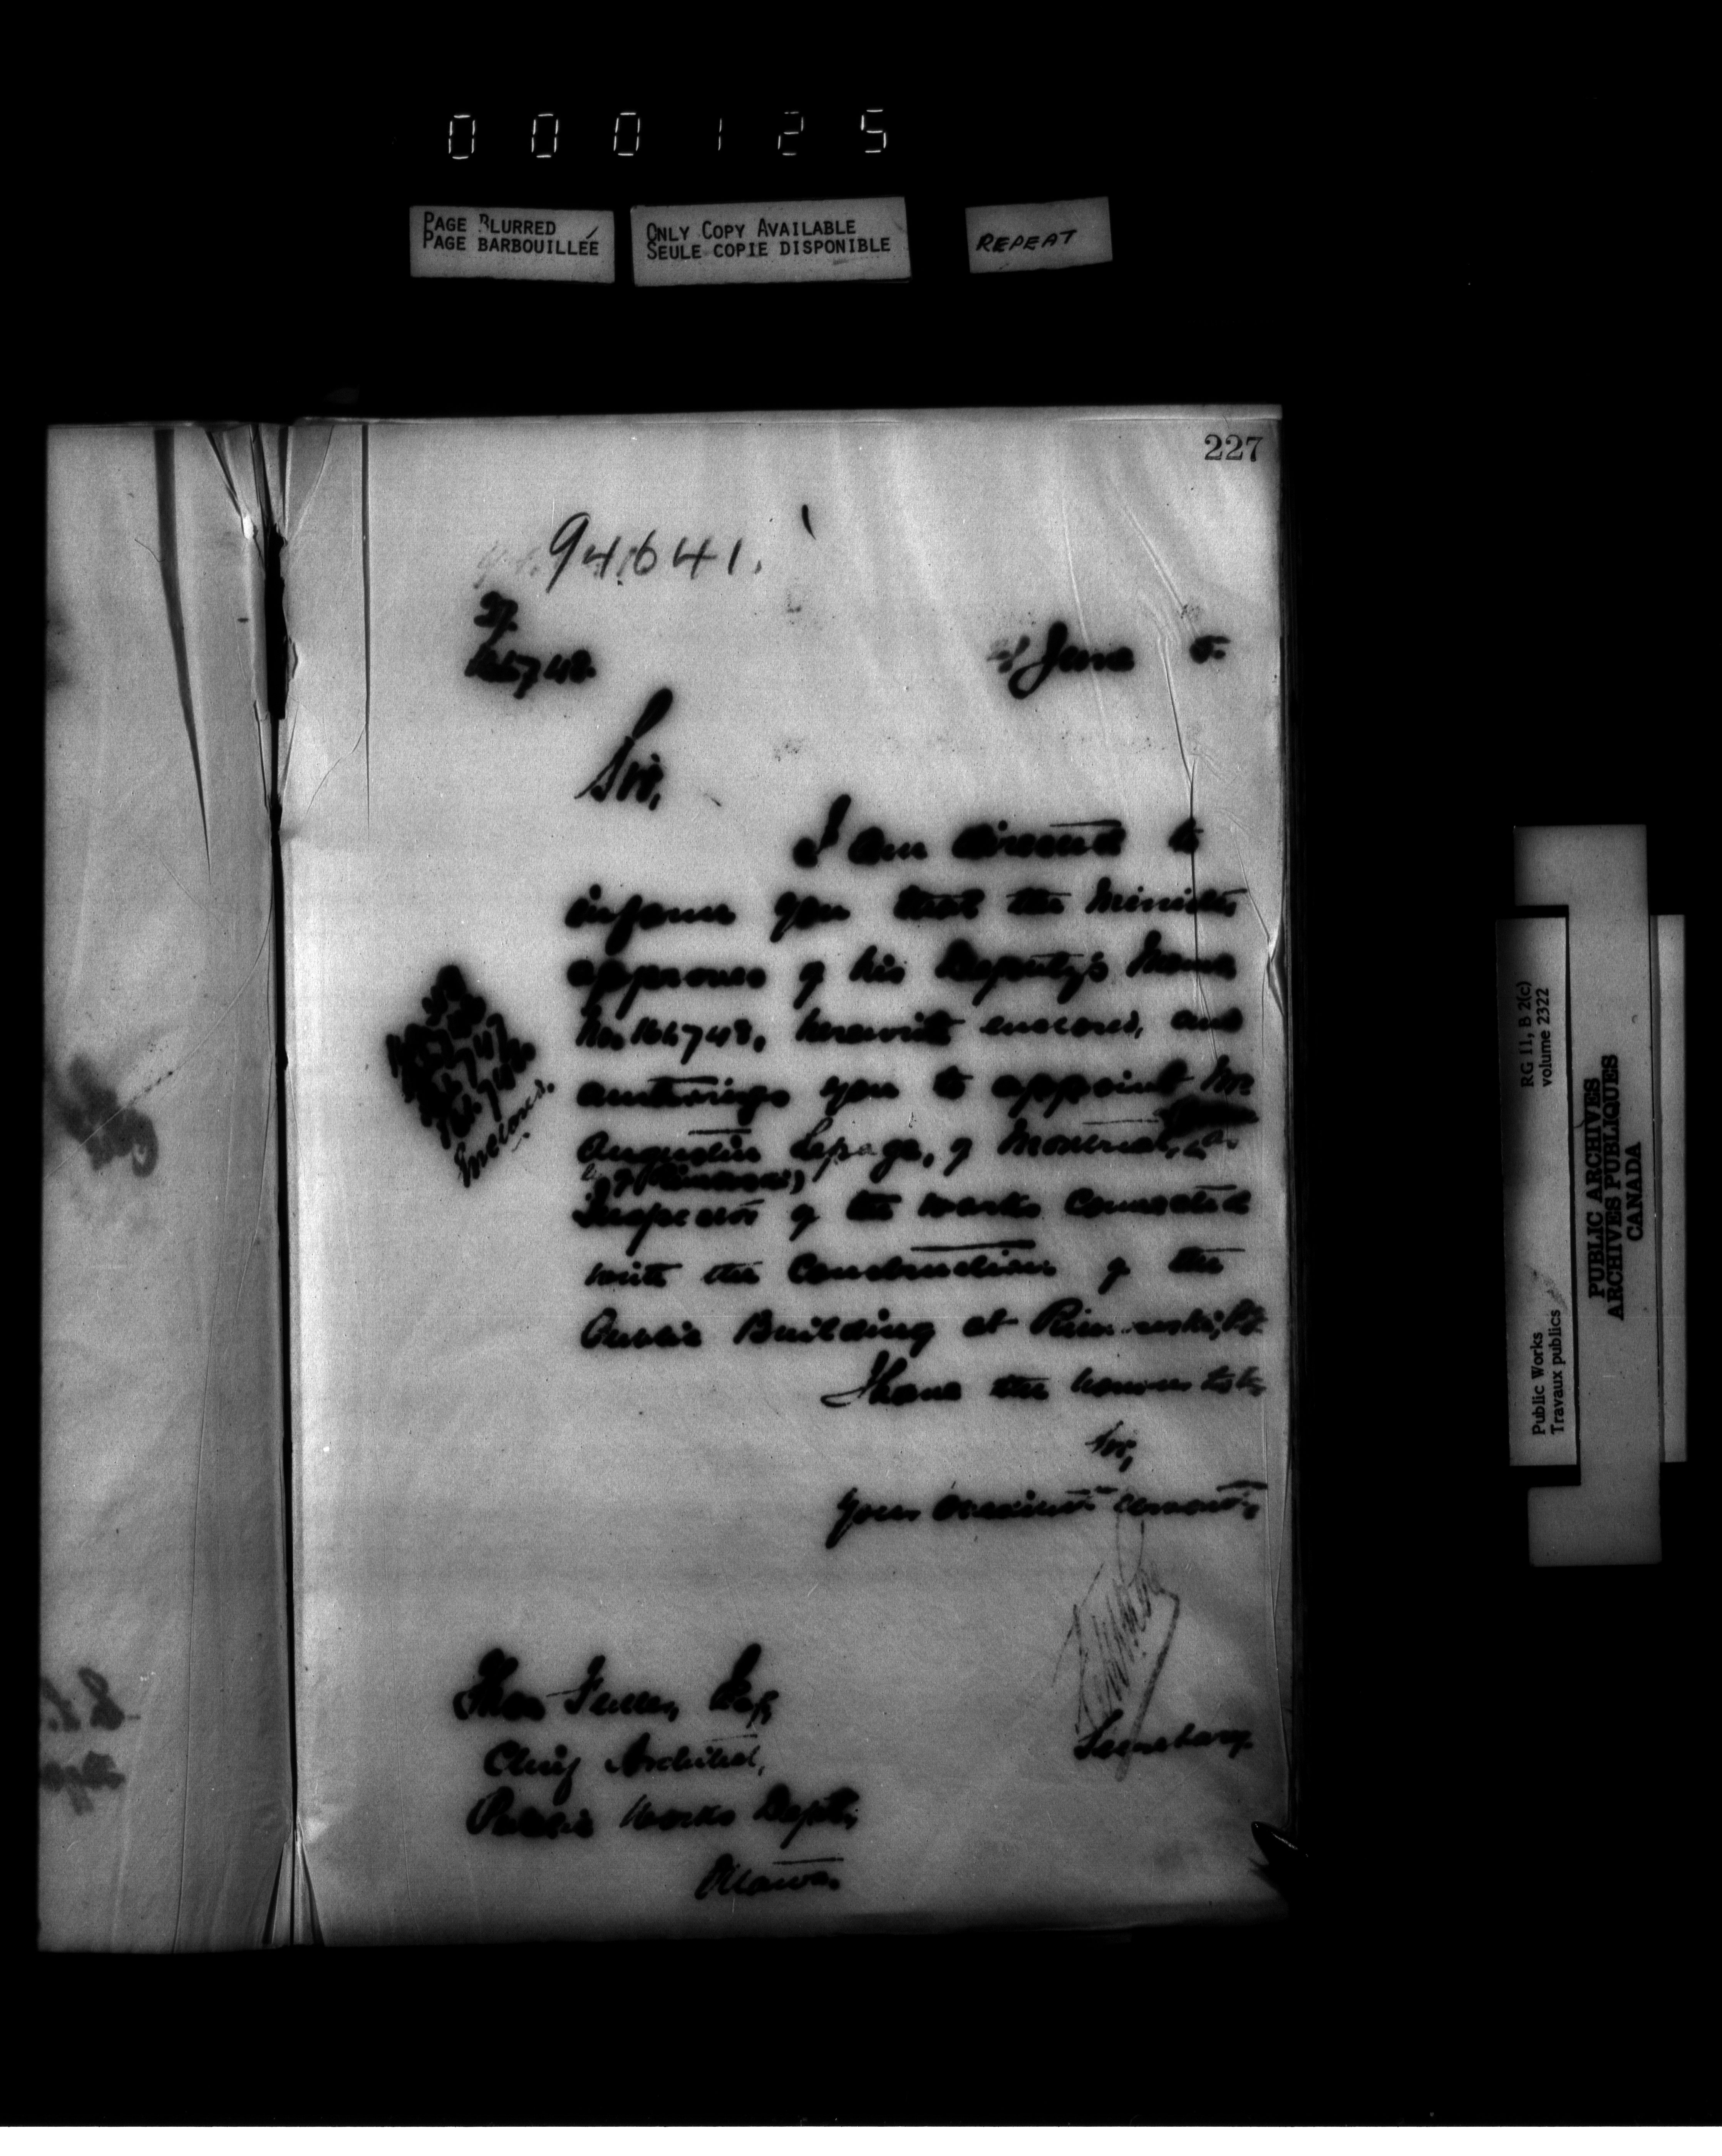 000125
PAGE BLURRED
PAGE BARBOUILLÉE
ONLY COPY AVAILABLE
SEULE COPIE DISPONIBLE
REPEAT
227
94641.
166748.
June 5.
Sir,
I am directed to
inform you that the Minister
approves of his Deputy's Memo
No. 166748, herewith enclosed, and
authorizes you to appoint Mr.
Augustin Lepage, of Montreal, as
Inspector of the works connected
with the Construction of the
Public Building at Rimouski,
I have the honour to be
Sir,
Your obedient servant,
Enclosed.
Secretary
Thos Fuller, Esq
Chief Architect,
Public Works Dept,
Ottawa.
RG 11, B 2(c)
volume 2322
Public Works
Travaux publics
PUBLIC ARCHIVES
ARCHIVES PUBLIQUES
CANADA